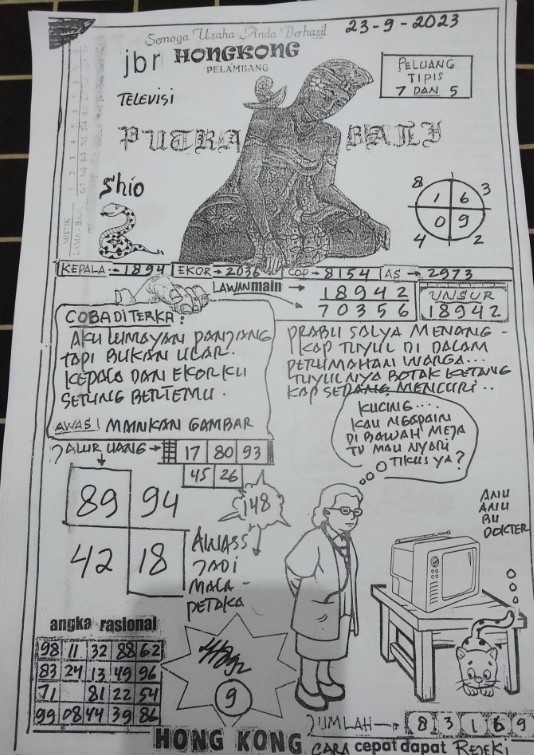 Semoga Usaha Anda Berhasil
23-9-2023
jbr HONGKONG
PELAMBANG
TELEVISI
PELUANG
TIPIS
7 DAN 5
PUTRA BALI
Shio
8 1 6 3
4 0 9 2
KEPALA→1894 EKOR→2036 COP→8154 AS→2973
LAWANmain→ 18942
70356
UNSUR
18942
COBA DITERKA:
AKU LUMAYAN PANJANG
TAPI BUKAN ULAR.
KEPALA DAN EKORKU
SERING BERTEMU.
AWAS! MAINKAN GAMBAR
PRABU SALYA MENANG-
KAP TUYUL DI DALAM
PERUMAHAN WARGA...
TUYULNYA BOTAK KETANG
KAP SEDANG MENCURI..
KUCING....
KAU NGAPAIN
DI BAWAH MEJA
TU MAU NYARI
TIKUS YA?
JALUR UANG→ 17 80 93
45 26
89 94
42 18
148
AWASS
JADI
MALA-
PETAKA
ANU
ANU
BU
DOKTER
angka rasional
98 11 32 88 62
83 24 13 49 96
71 81 22 54
99 08 44 39 86
9
JUMLAH→ 8 3 1 6 9
HONG KONG CARA cepat dapat REJEKI